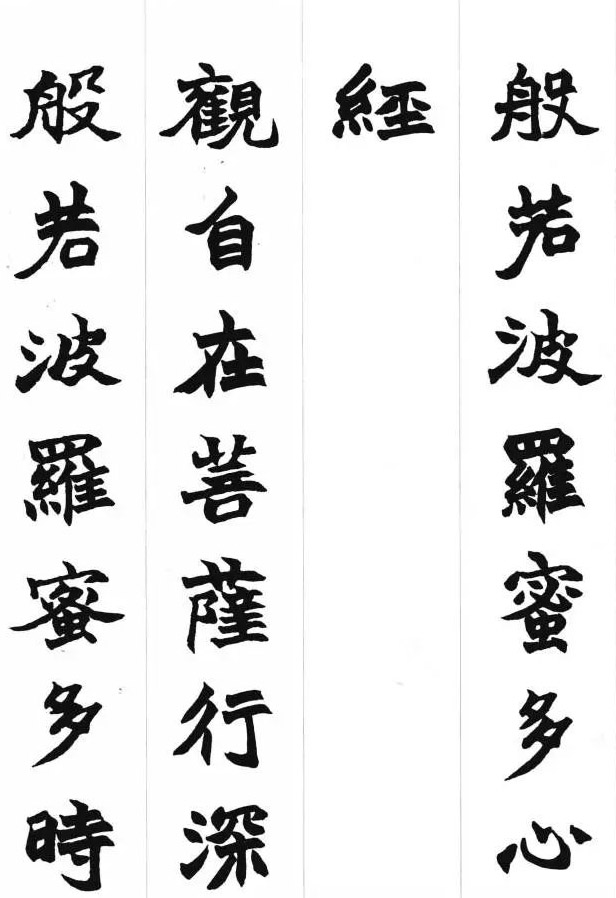 般若波羅蜜多心
經
觀自在菩薩行深
般若波羅蜜多時